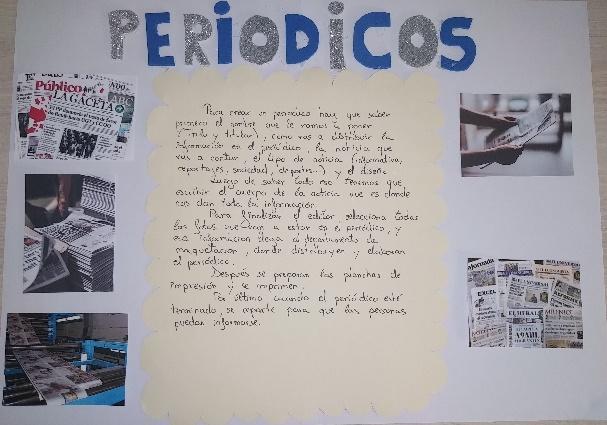 PERIODICOS
Público
LA GACETA
ABC
Para crear un periodico hay que saber
primero el nombre que le vamos a poner
(Titulo y titular), como vas a distribuir la
información en el periódico, la noticia que
vas a contar, el tipo de noticia (informativa,
reportajes, sociedad, deportes...) y el diseño
Luego de saber todo eso tenemos que
escribir el cuerpo de la noticia que es donde
nos dan toda la información.
Para finalizar el editor, selecciona todas
las fotos que van a estar en el periódico, y
esa información llega al departamento de
maquetación, donde distribuyen y elaboran
el periódico.
Después se preparan las planchas de
impresión y se imprimen.
Por último cuando el periódico esté
terminado, se reparte para que las personas
puedan informarse.
EL UNIVERSAL
MILENIO